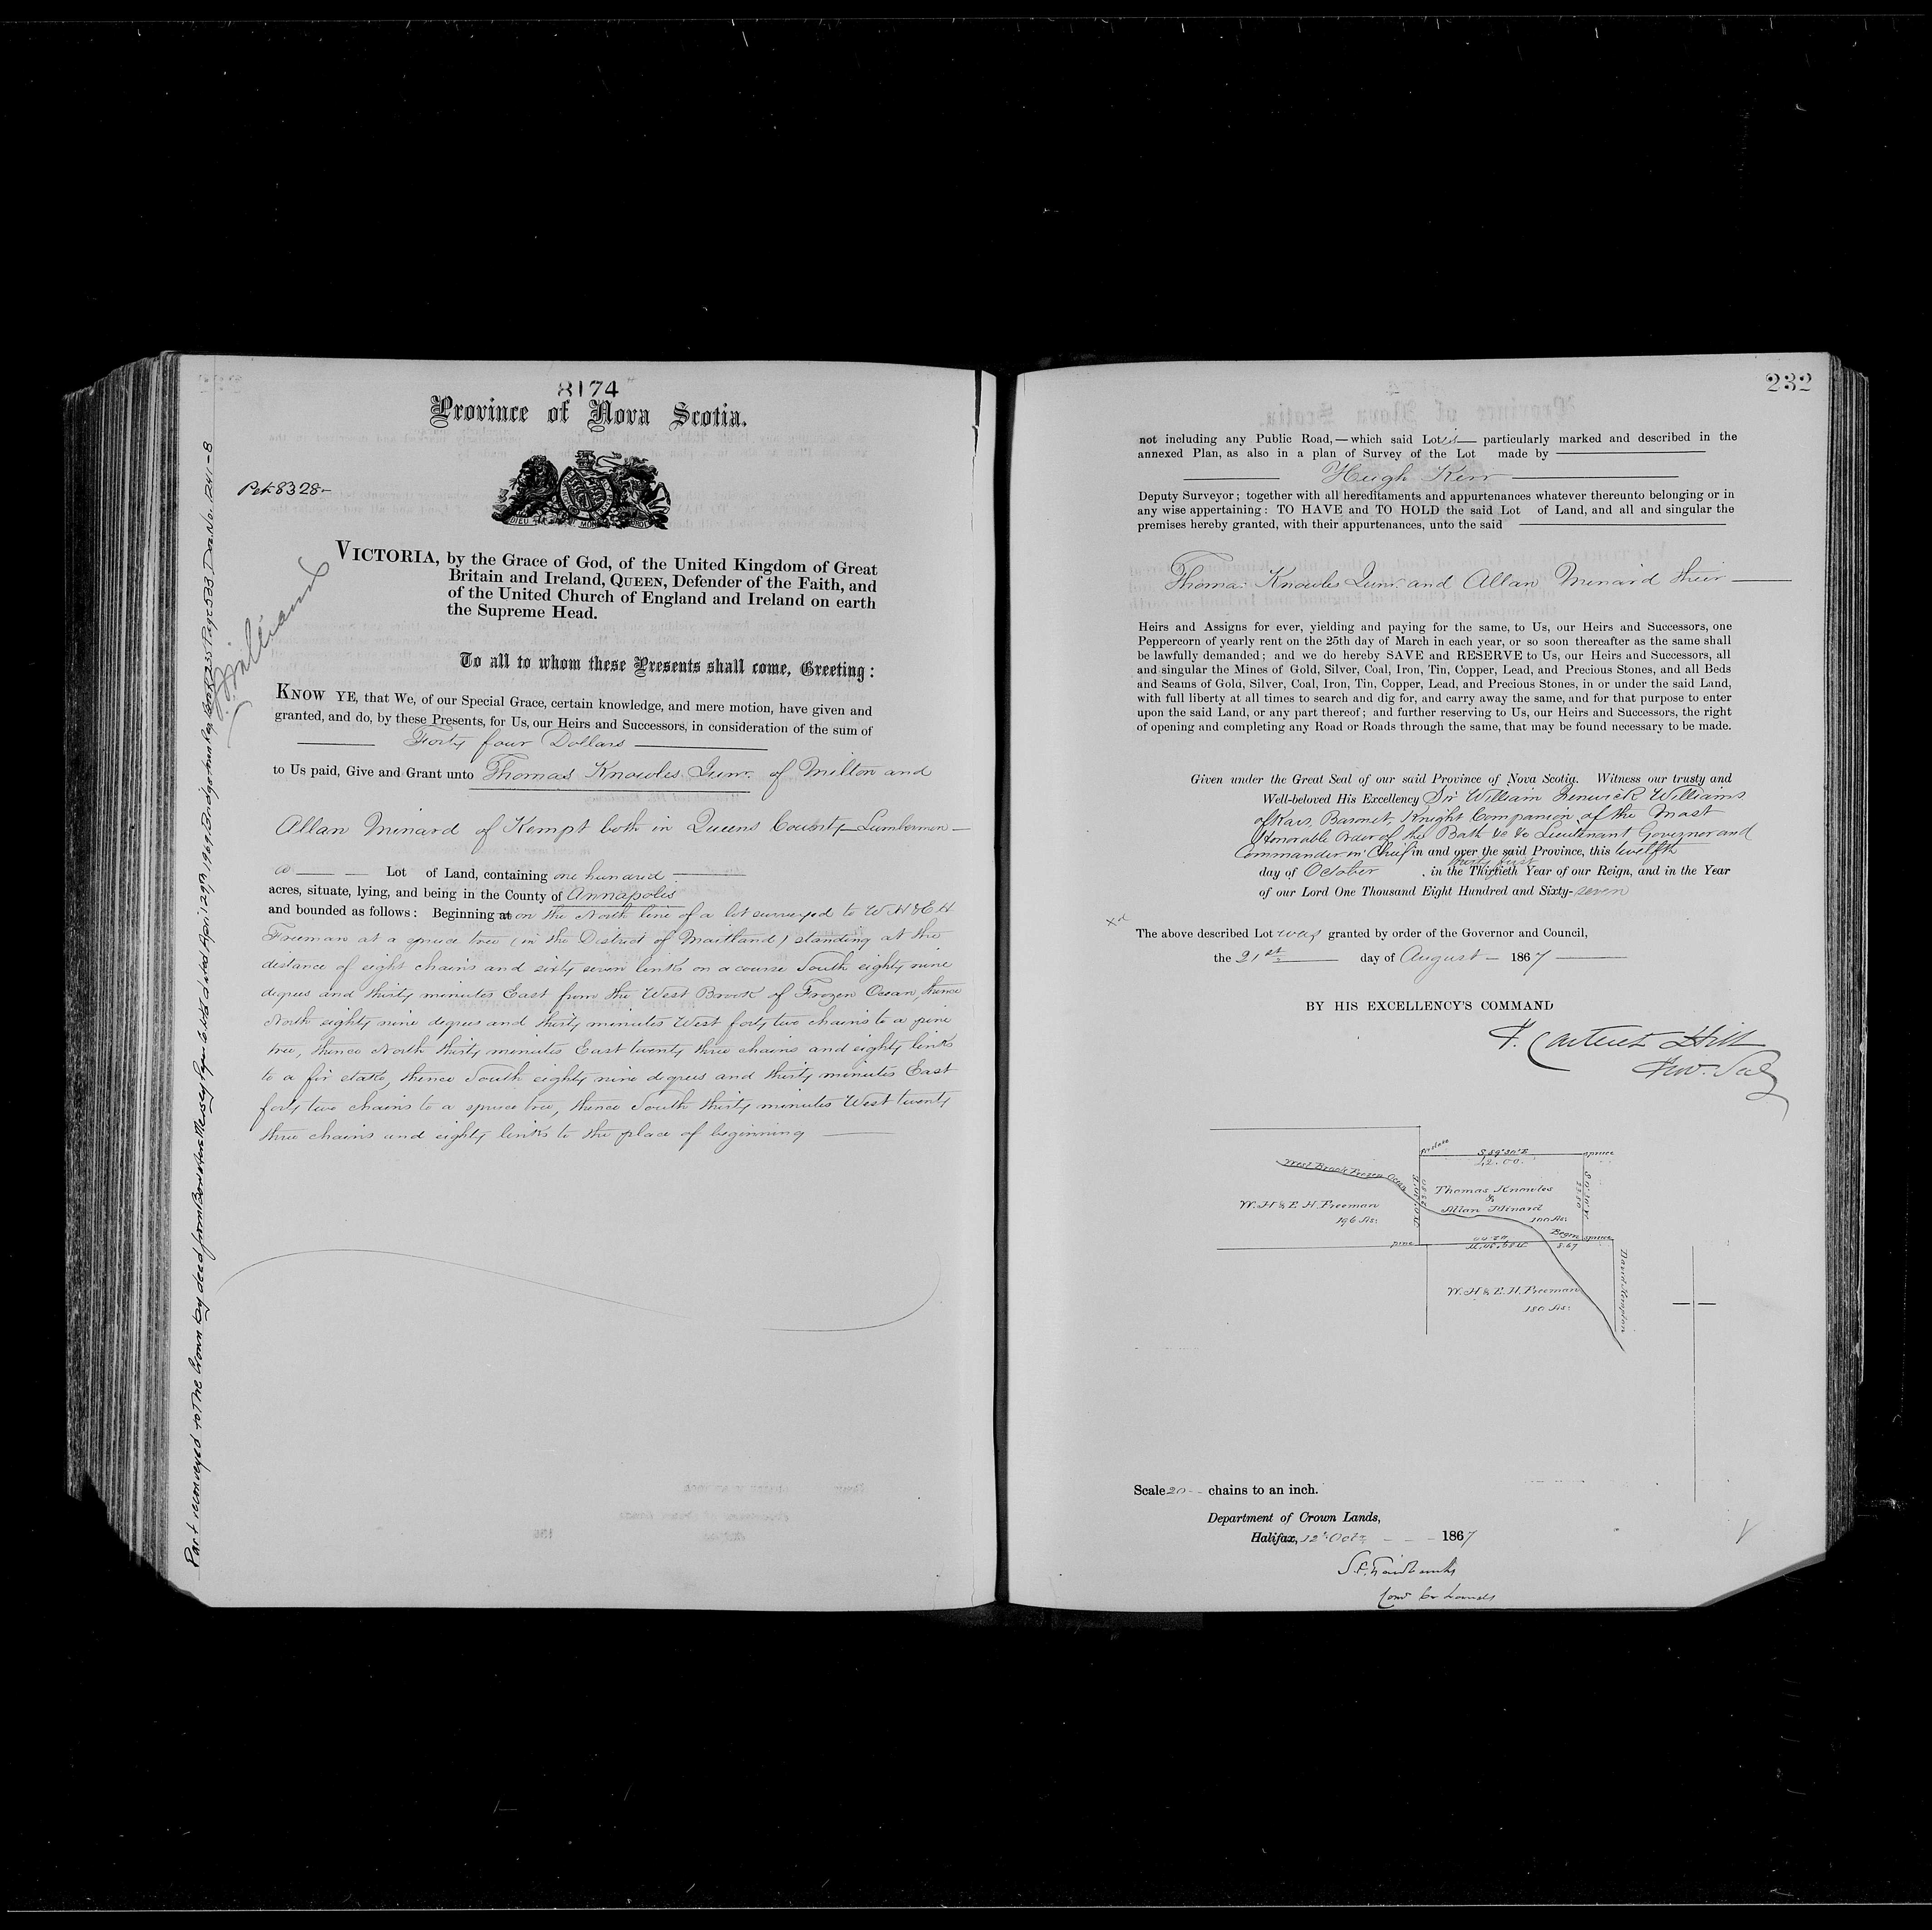 8174
Province of Nova Scotia.
Pet 8328-
DIEU ET MON DROIT
VICTORIA, by the Grace of God, of the United Kingdom of Great
Britain and Ireland, QUEEN, Defender of the Faith, and
of the United Church of England and Ireland on earth
the Supreme Head.
To all to whom these Presents shall come, Greeting:
KNOW YE, that We, of our Special Grace, certain knowledge, and mere motion, have given and
granted, and do, by these Presents, for Us, our Heirs and Successors, in consideration of the sum of
Forty four Dollars
to Us paid, Give and Grant unto Thomas Knowles Junr. of Milton and
Allan Minard of Kempt both in Queens County - Lumbermen -
a Lot of Land, containing one hundred
acres, situate, lying, and being in the County of Annapolis
and bounded as follows: Beginning at on the North line of a lot surveyed to W H & E H
Freeman at a spruce tree (in the District of Maitland) standing at the
distance of eight chains and sixty seven links on a course South eighty nine
degrees and thirty minutes East from the West Brook of Frozen Ocean, thence
North eighty nine degrees and thirty minutes West forty two chains to a pine
tree, thence North thirty minutes East twenty three chains and eighty links
to a fir stake, thence South eighty nine degrees and thirty minutes East
forty two chains to a spruce tree, thence South thirty minutes West twenty
three chains and eighty links to the place of beginning
Part reconveyed to The Crown by deed from Bowaters Mersey Paper Co Ltd dated April 29th 1969, Bridgetown Reg. Book 235 Page 533 Doc No. 1241-B
232
not including any Public Road,—which said Lot is particularly marked and described in the
annexed Plan, as also in a plan of Survey of the Lot made by
Hugh Kerr
Deputy Surveyor; together with all hereditaments and appurtenances whatever thereunto belonging or in
any wise appertaining: TO HAVE and TO HOLD the said Lot of Land, and all and singular the
premises hereby granted, with their appurtenances, unto the said
Thomas Knowles Junr. and Allan Minard their
Heirs and Assigns for ever, yielding and paying for the same, to Us, our Heirs and Successors, one
Peppercorn of yearly rent on the 25th day of March in each year, or so soon thereafter as the same shall
be lawfully demanded; and we do hereby SAVE and RESERVE to Us, our Heirs and Successors, all
and singular the Mines of Gold, Silver, Coal, Iron, Tin, Copper, Lead, and Precious Stones, and all Beds
and Seams of Gold, Silver, Coal, Iron, Tin, Copper, Lead, and Precious Stones, in or under the said Land,
with full liberty at all times to search and dig for, and carry away the same, and for that purpose to enter
upon the said Land, or any part thereof; and further reserving to Us, our Heirs and Successors, the right
of opening and completing any Road or Roads through the same, that may be found necessary to be made.
Given under the Great Seal of our said Province of Nova Scotia. Witness our trusty and
Well-beloved His Excellency Sir William Fenwick Williams
of Kars, Baronet, Knight Companion of the Most
Honorable Order of the Bath &c &c Lieutenant Governor and
Commander in Chief in and over the said Province, this twelfth
day of October in the Thirtieth thirty first Year of our Reign, and in the Year
of our Lord One Thousand Eight Hundred and Sixty-seven
xd
The above described Lot was granted by order of the Governor and Council,
the 21st day of August 1867
BY HIS EXCELLENCY'S COMMAND
P. Carteret Hill
Prov. Secy
fir stake
S.89°30'E
42.00
spruce
West Brook Frozen Ocean
Thomas Knowles
&
Allan Minard
100 As:
23.80
S.0°30'W
23.80
W. H & E. H. Freeman
196 As:
pine
Began spruce
8.67
W. H & E. H. Freeman
180 As:
David Kempton
Scale 20 chains to an inch.
Department of Crown Lands,
Halifax, 12th Octr. 1867
S. P. Fairbanks
Comr Cr Lands